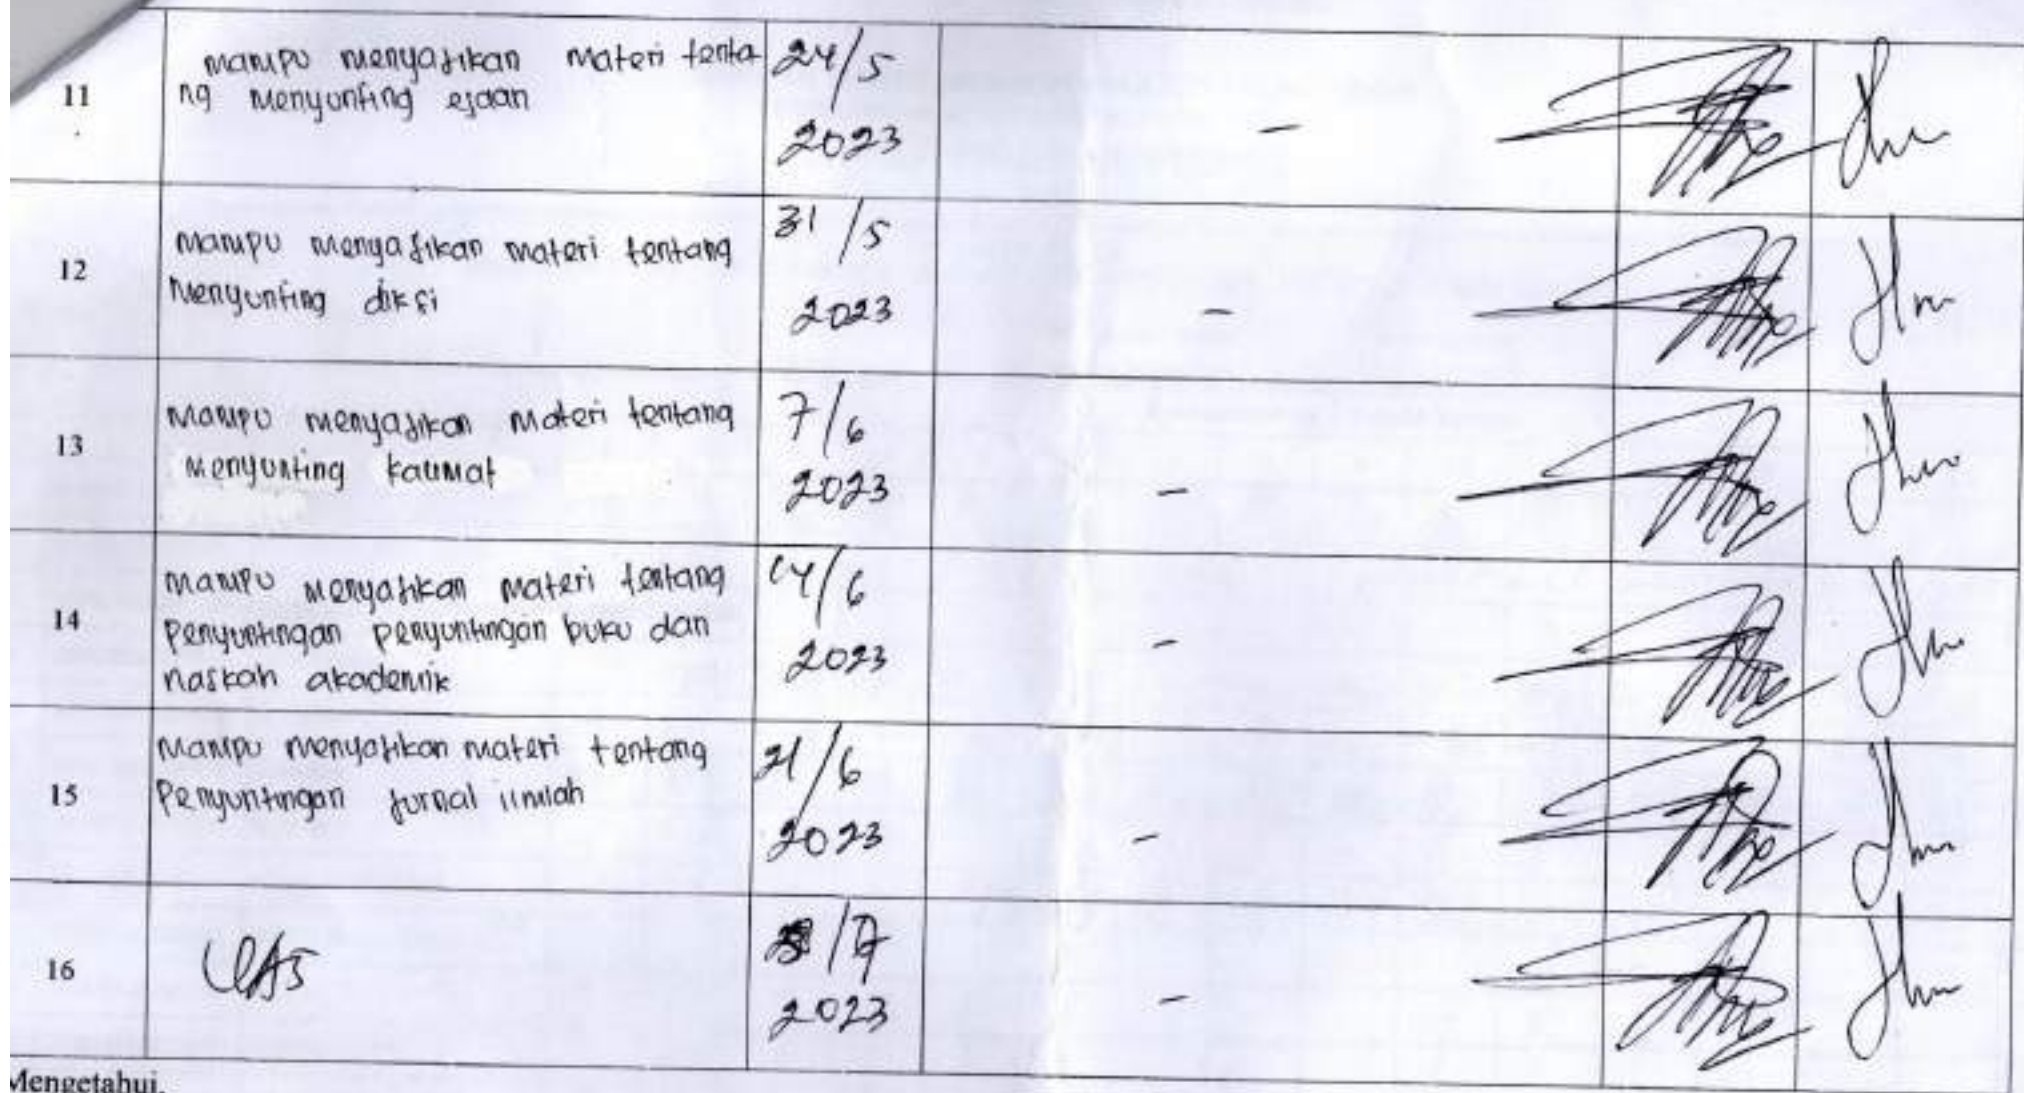 11
mampu menyajikan materi tenta
ng menyunting ejaan
24/5
2023
-
12
mampu menyajikan materi tentang
menyunting diksi
31/5
2023
-
13
mampu menyajikan materi tentang
menyunting kalimat
7/6
2023
-
14
mampu menyajikan materi tentang
penyuntingan penyuntingan buku dan
naskah akademik
14/6
2023
-
15
mampu menyajikan materi tentang
Penyuntingan jurnal ilmiah
21/6
2023
-
16
UAS
/7
2023
-
Mengetahui,